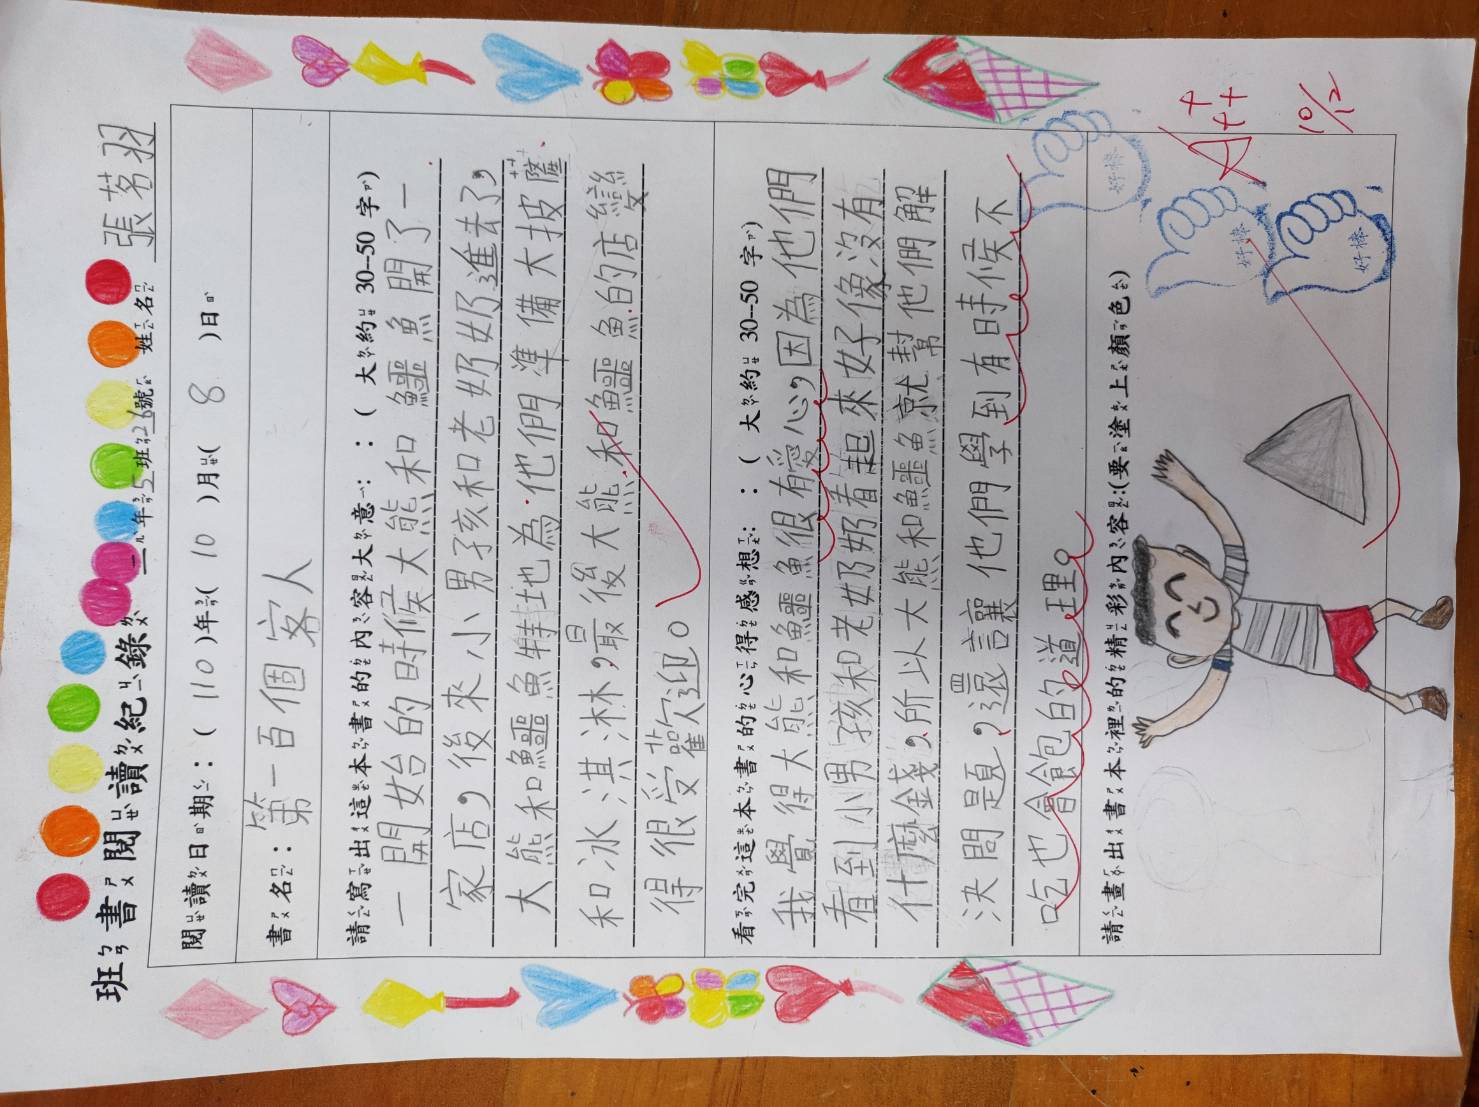 班書閱讀紀錄 二年5班26號 姓名 張茗羽
閱讀日期：( 110 )年( 10 )月( 8 )日
書名：第一百個客人
請寫出這本書的內容大意：：( 大約 30–50 字)
一開始的時候大熊和鱷魚開了一
家店，後來小男孩和老奶奶進去了，
大熊和鱷魚特地為他們準備大披薩
和冰淇淋，最後大熊和鱷魚的店變
得很受歡迎。
看完這本書的心得感想：：( 大約 30–50 字)
我覺得大熊和鱷魚很有愛心，因為他們
看到小男孩和老奶奶看起來好像沒有
什麼錢，所以大熊和鱷魚就幫他們解
決問題，還讓他們學到有時候不
吃也會飽的道理。
請畫出書本裡的精彩內容：(要塗上顏色)
好棒
好棒
好棒
A+++
10/12